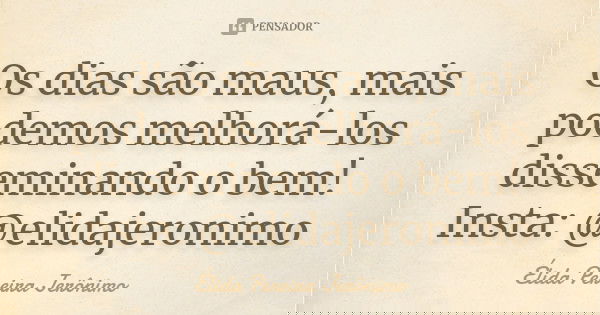 PENSADOR
Os dias são maus, mais
podemos melhorá-los
disseminando o bem!
Insta: @elidajeronimo
Élida Pereira Jerônimo